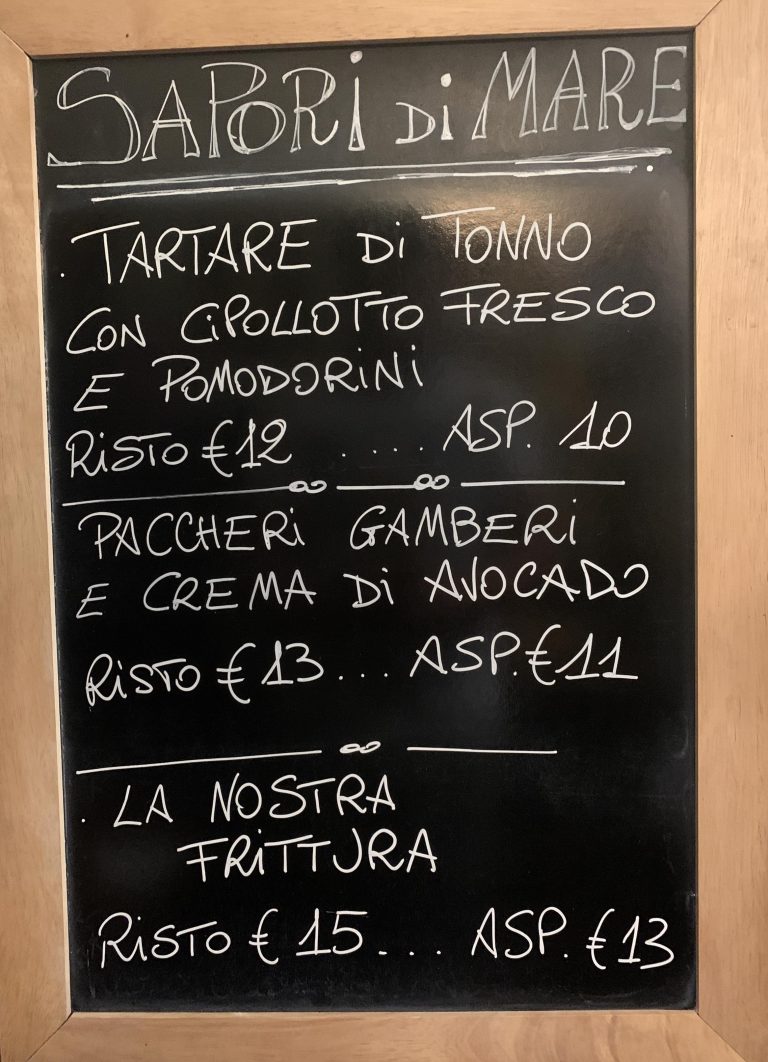 SAPORI di MARE
. TARTARE Di TONNO
CON CiPOLLOTTO FRESCO
E POMODORINI
RiSTO €12 ..... ASP. 10
PACCHERi GAMBERi
E CREMA Di AVOCADO
RiSTO €13... ASP. €11
. LA NOSTRA
FRiTTURA
RiSTO €15.... ASP. €13